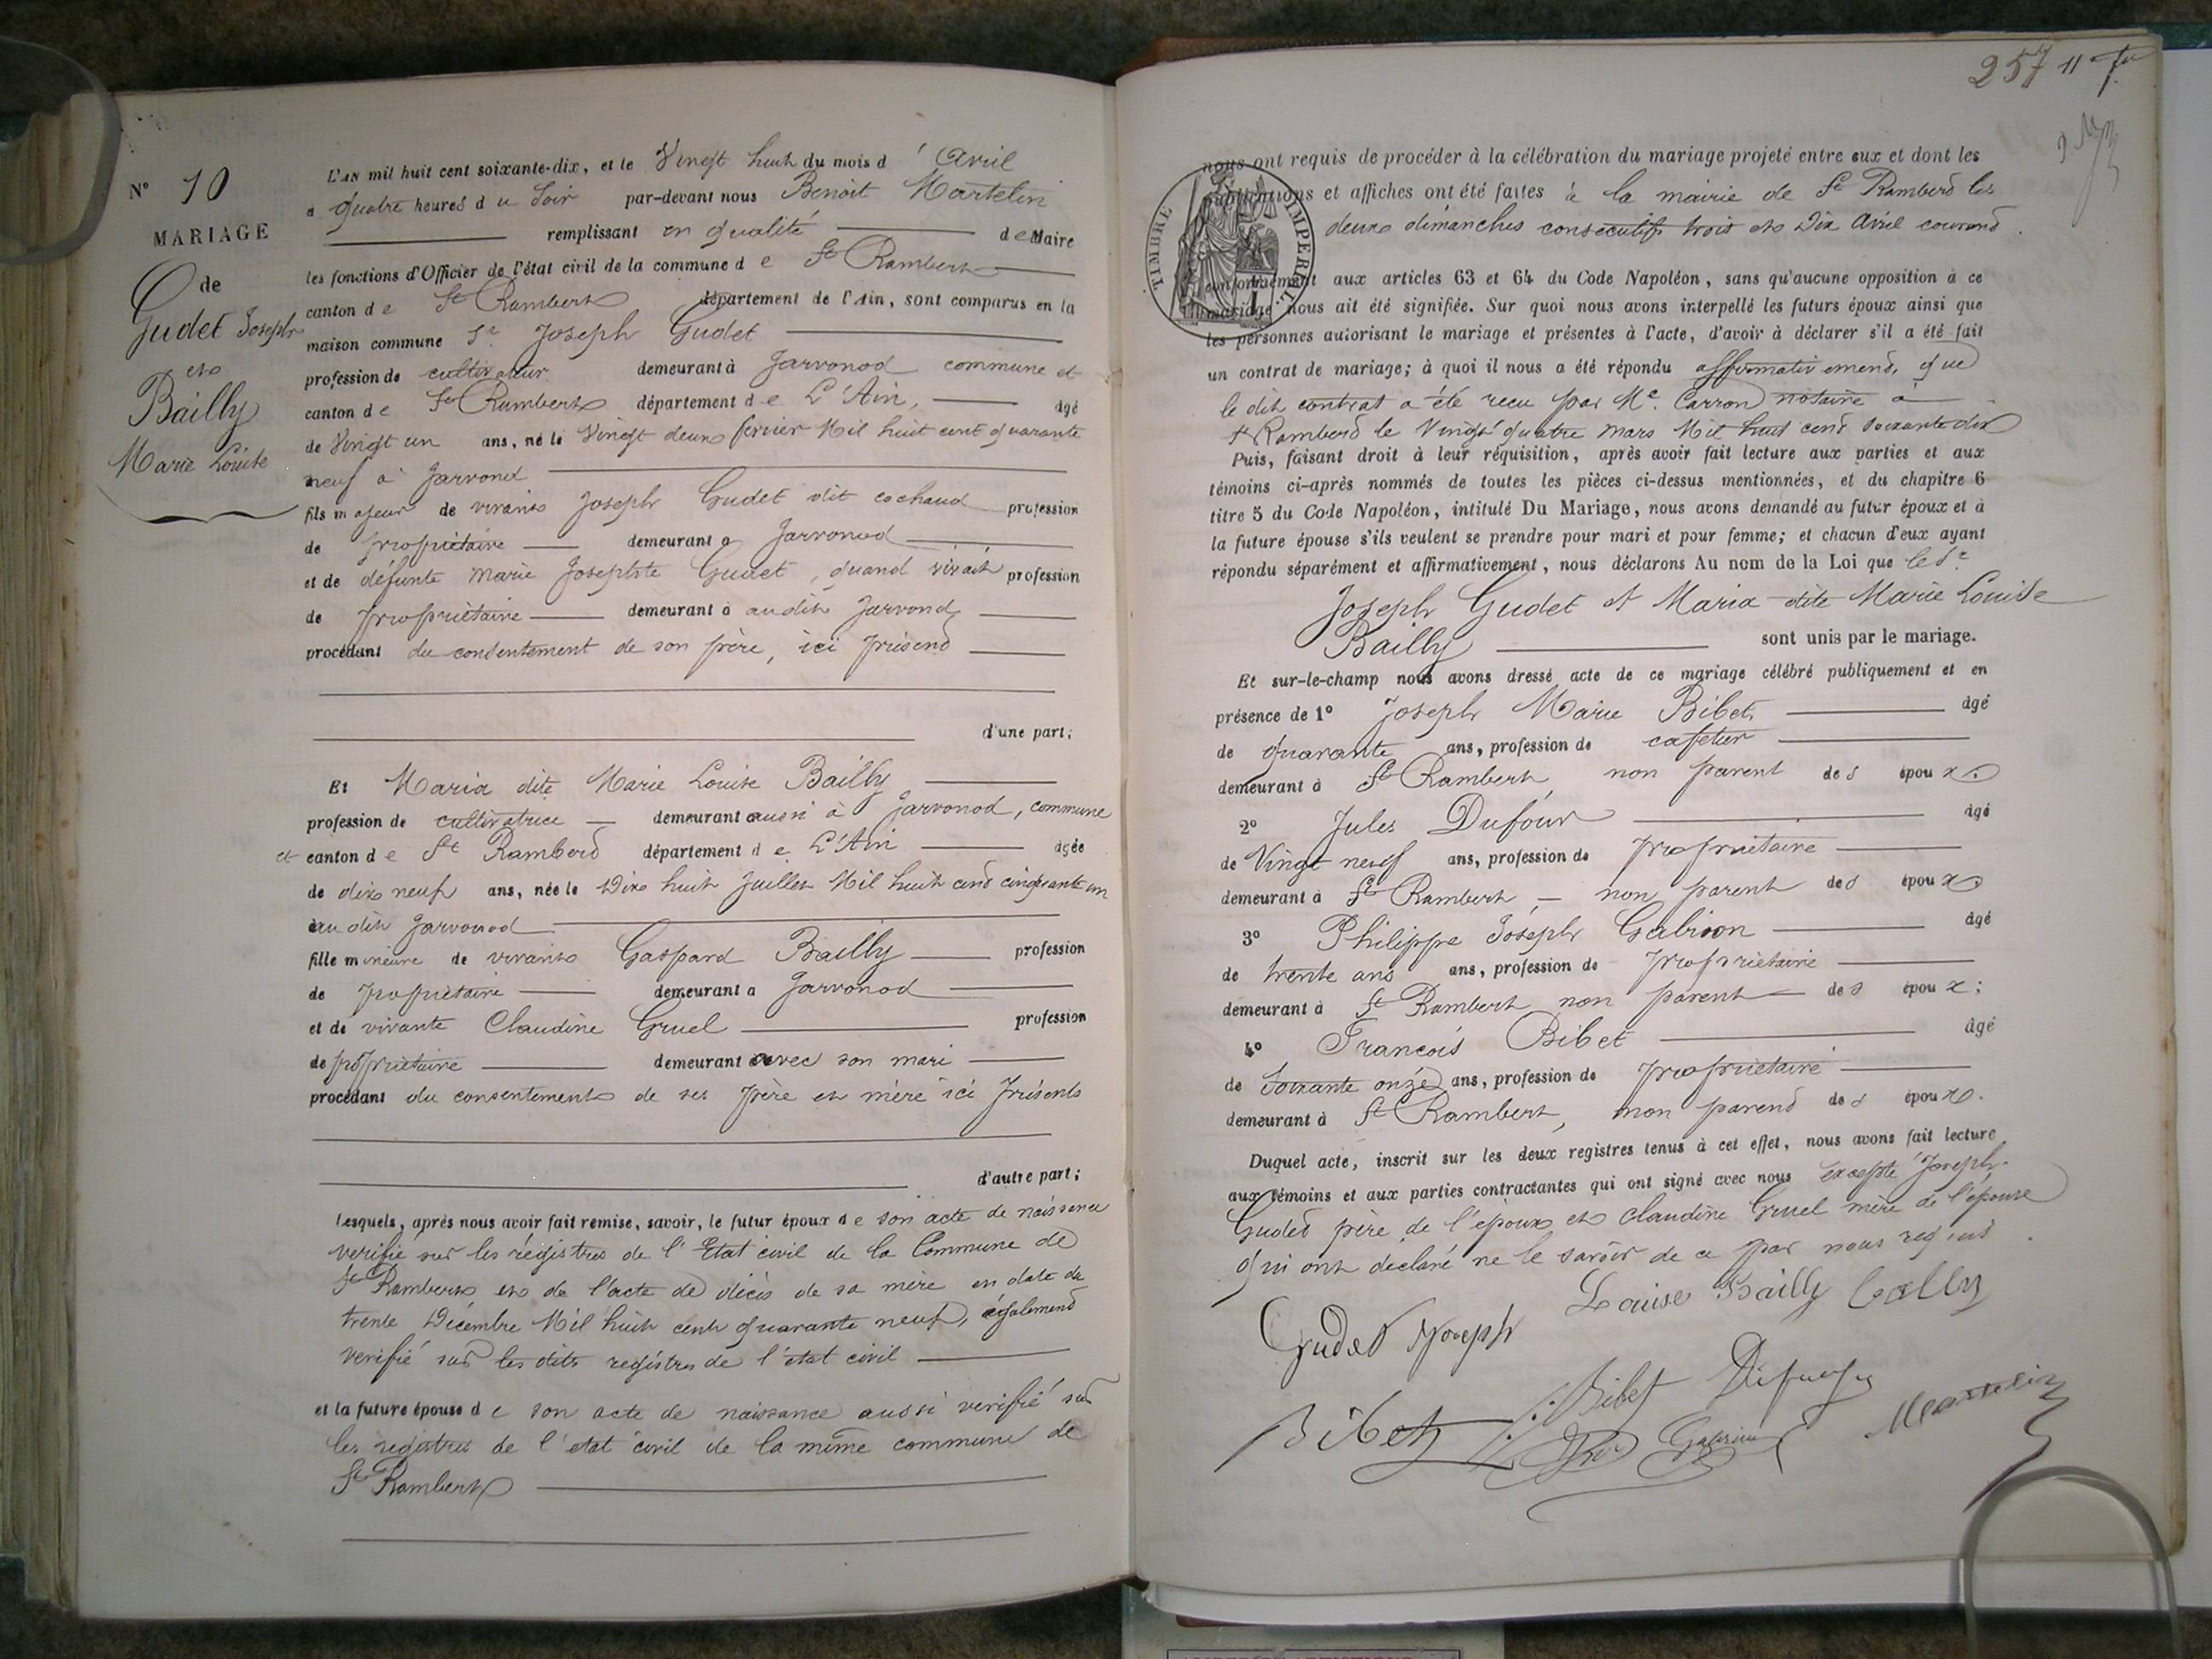 N° 10
MARIAGE
de
Gudet Joseph
et
Bailly
Marie Louise
L'AN mil huit cent soixante-dix, et le Vingt huit du mois d'Avril
à quatre heures du Soir par-devant nous Benoit Martelin
remplissant en qualité de Maire
les fonctions d'Officier de l'état civil de la commune de St Rambert
canton de St Rambert département de l'Ain, sont comparus en la
maison commune Sr Joseph Gudet
profession de cultivateur demeurant à Javornod commune et
canton de St Rambert département de L'Ain, âgé
de Vingt un ans, né le Vingt deux fevrier Mil huit cent quarante
neuf à Javornod
fils majeur de vivant Joseph Gudet dit cochaud profession
de propriétaire demeurant a Javornod
et de défunte Marie Josephte Gudet, quand vivait profession
de propriétaire demeurant à audit Javornod
procédant du consentement de son père, ici présent
d'une part;
Et Maria dite Marie Louise Bailly
profession de cultivatrice demeurant aussi à Javornod, commune
et canton de St Rambert département de L'Ain âgée
de dix neuf ans, née le Dix huit Juillet Mil huit cent cinquante un
audit Javornod
fille mineure de vivant Gaspard Bailly profession
de propriétaire demeurant a Javornod
et de vivante Claudine Gruel profession
de propriétaire demeurant avec son mari
procédant du consentement de ses père et mère ici présents
d'autre part;
Lesquels, après nous avoir fait remise, savoir, le futur époux de son acte de naissance
verifié sur les régistres de l'Etat civil de la Commune de
St Rambert et de l'acte de décès de sa mère en date du
trente Décembre Mil huit cent quarante neuf, également
verifié sur les dits registres de l'état civil
et la future épouse de son acte de naissance aussi verifié sur
les registres de l'etat civil de la même commune de
St Rambert
257 11
TIMBRE IMPERIAL
nous ont requis de procéder à la célébration du mariage projeté entre eux et dont les
publications et affiches ont été faites à la mairie de St Rambert les
deux dimanches consecutifs trois et Dix Avril courant
conformément aux articles 63 et 64 du Code Napoléon, sans qu'aucune opposition à ce
mariage nous ait été signifiée. Sur quoi nous avons interpellé les futurs époux ainsi que
les personnes autorisant le mariage et présentes à l'acte, d'avoir à déclarer s'il a été fait
un contrat de mariage; à quoi il nous a été répondu affirmativement, que
le dit contrat a été recu par Me. Carron notaire à
St Rambert le Vingt quatre Mars Mil huit cent soixante dix
Puis, faisant droit à leur réquisition, après avoir fait lecture aux parties et aux
témoins ci-après nommés de toutes les pièces ci-dessus mentionnées, et du chapitre 6
titre 5 du Code Napoléon, intitulé Du Mariage, nous avons demandé au futur époux et à
la future épouse s'ils veulent se prendre pour mari et pour femme; et chacun d'eux ayant
répondu séparément et affirmativement, nous déclarons Au nom de la Loi que le Sr
Joseph Gudet et Maria dite Marie Louise
Bailly sont unis par le mariage.
Et sur-le-champ nous avons dressé acte de ce mariage célébré publiquement et en
présence de 1° Joseph Marie Bibet âgé
de quarante ans, profession de cafetier
demeurant à St Rambert, non parent des époux.
2° Jules Dufour âgé
de Vingt neuf ans, profession de propriétaire
demeurant à St Rambert, non parent des époux
3° Philippe Joseph Gabrion âgé
de trente ans ans, profession de propriétaire
demeurant à St Rambert non parent des époux;
4° Francois Bibet âgé
de Soixante onze ans, profession de propriétaire
demeurant à St Rambert, non parent des époux.
Duquel acte, inscrit sur les deux registres tenus à cet effet, nous avons fait lecture
aux témoins et aux parties contractantes qui ont signé avec nous excepté Joseph
Gudet père de l'epoux et Claudine Gruel mère de l'épouse
qui ont déclaré ne le savoir de ce par nous requis.
Louise Bailly Bailly
Gudet Joseph
Bibet Bibet Dufour Martelin
Gabrion